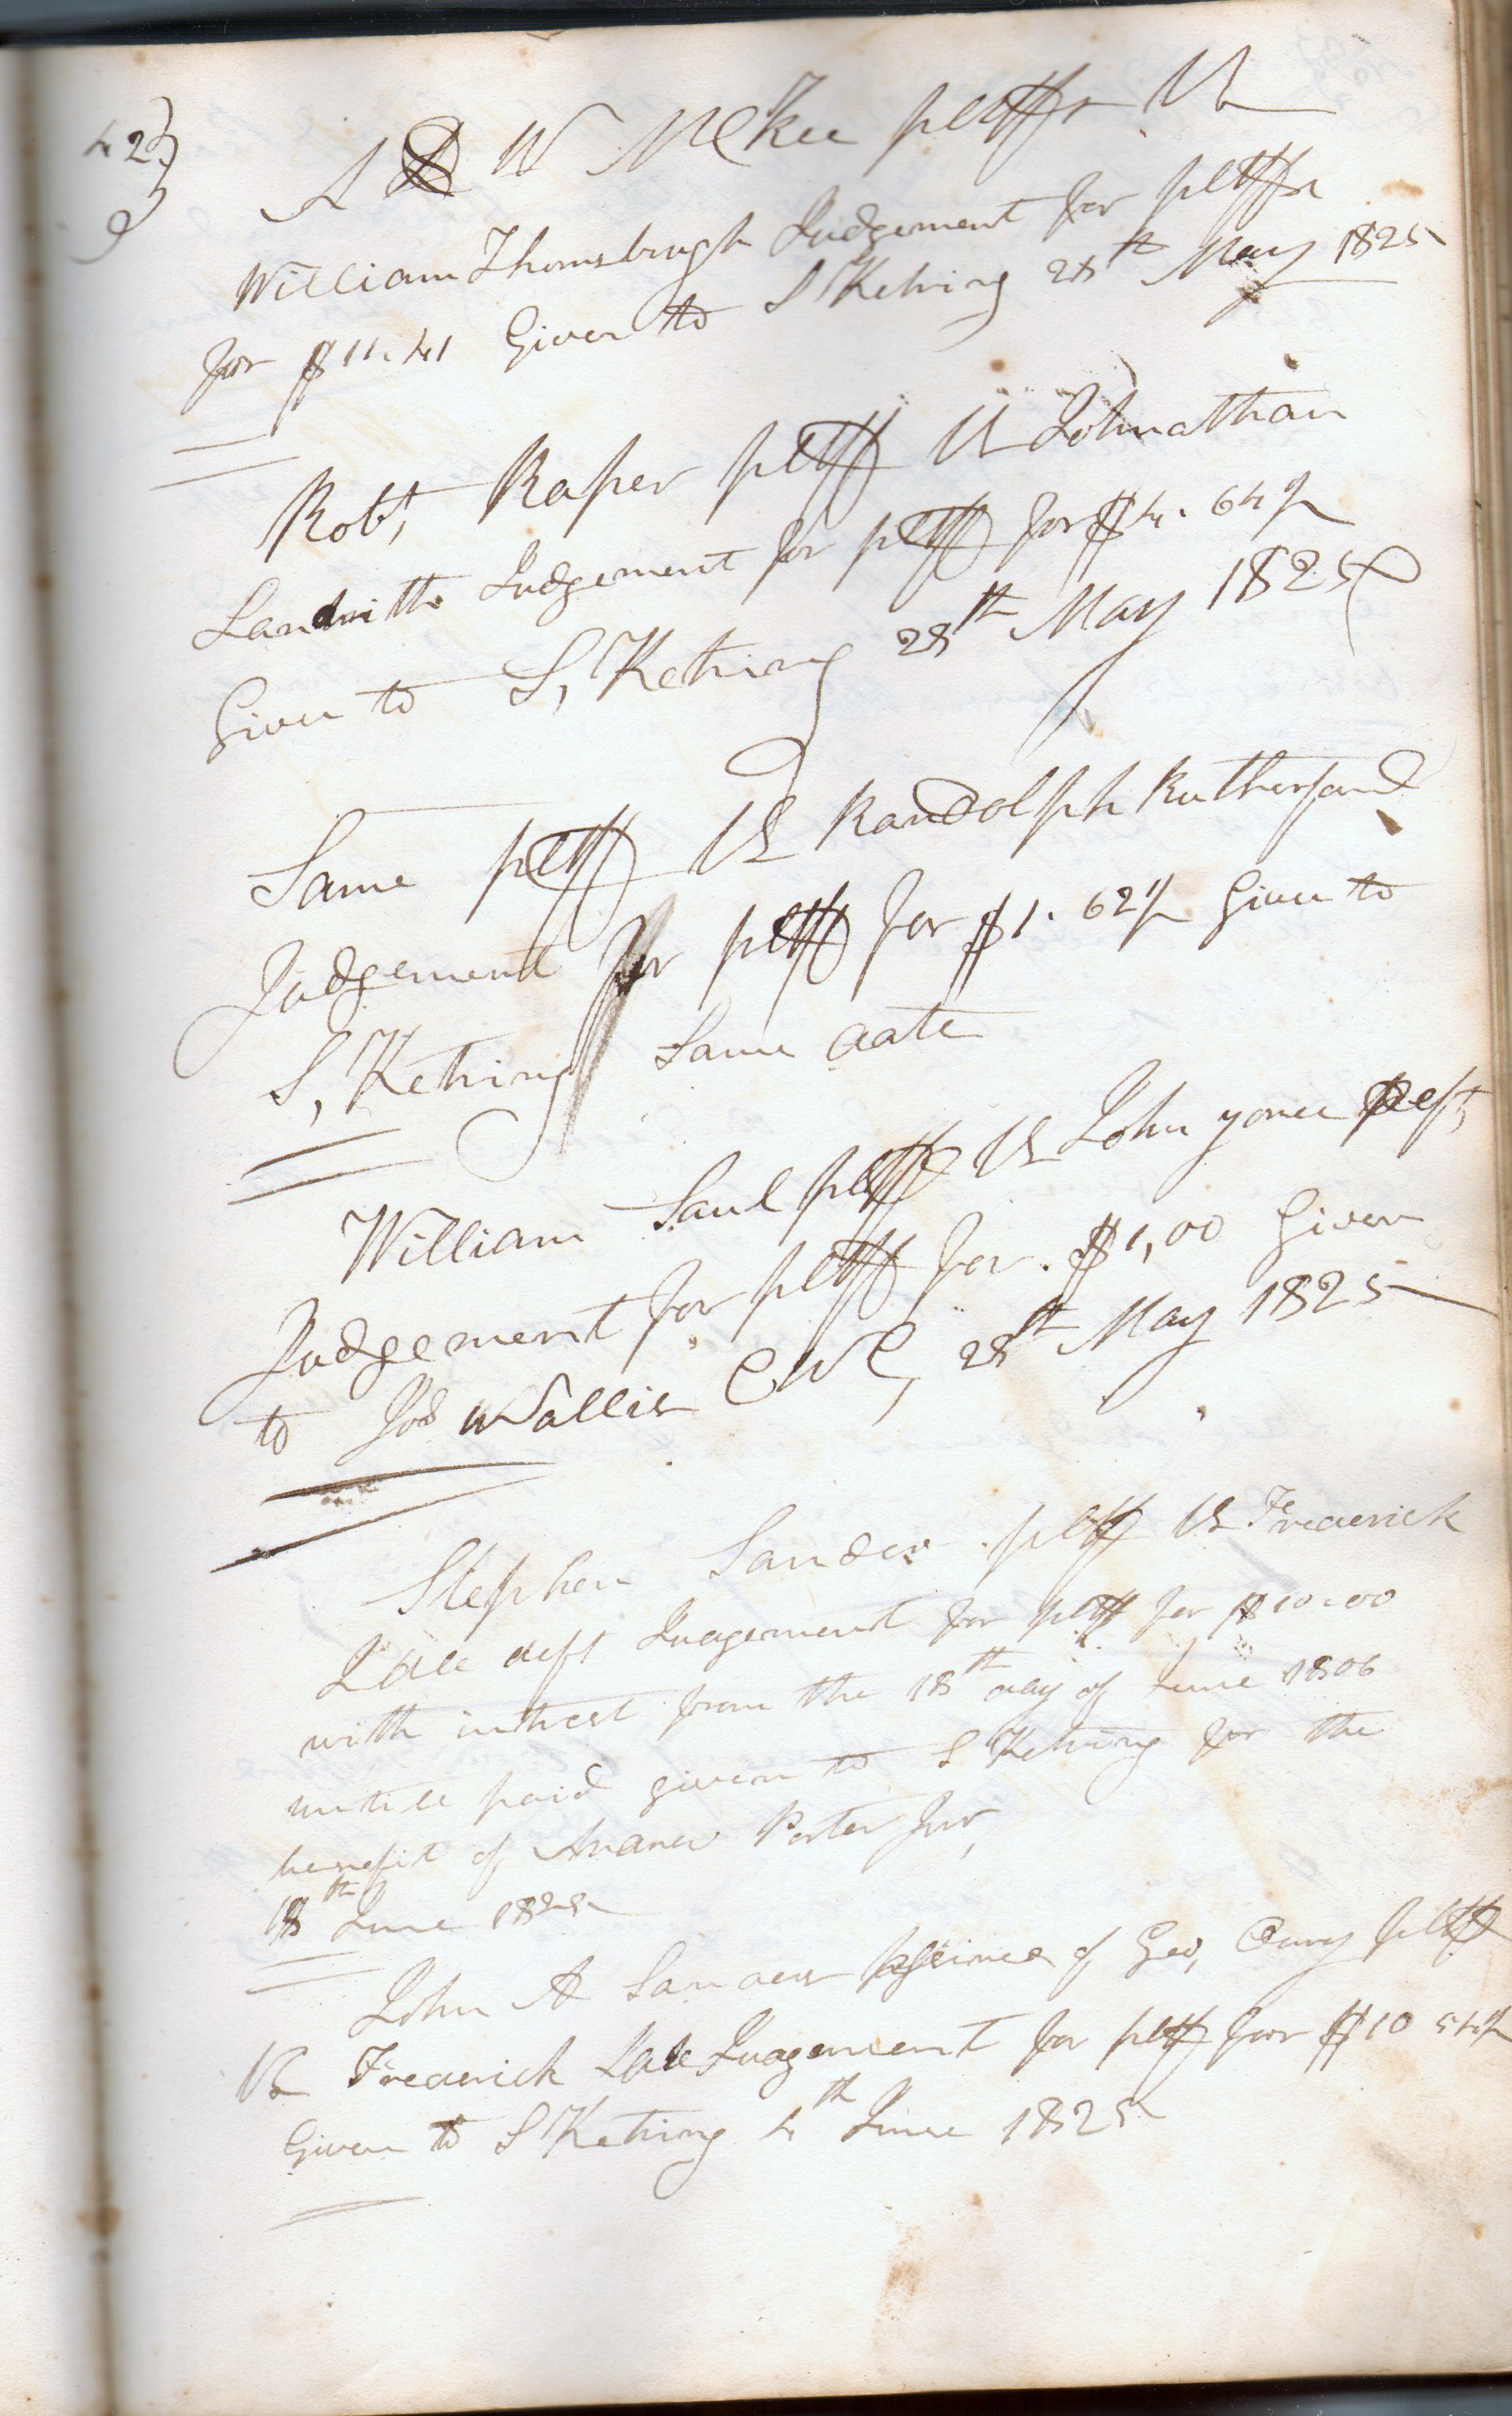 42
A & W McKee pltffs Vs
William Thornsbrugh Judgement for pltffs
for $11.41 Given to S Ketring 28th May 1825
Robt, Raper pltff Vs Johnathan
Judgement for pltff for $4. 64½
Given to S, Ketring 28th May 1825
Same pltff Vs Randolph Rutherford
Judgement for pltff for $1. 62½ Given to
S, Ketring Same date
William Saul pltff Vs John yonce Deft,
Judgement for pltff for. $1,00 Given
to Jos Wallis CWC, 28th May 1825
Stephen Sander pltff Vs Frederick
deft Judgement for pltff for $10.00
with intrest from the 18th day of June 1806
untill paid given to S Ketring for the
benefit of Porter Jur,
18th June 1825
John A Sanders of Geo, pltff
Vs Frederick Judgement for pltff for $10 54½
Given to S Ketring 4th June 1825